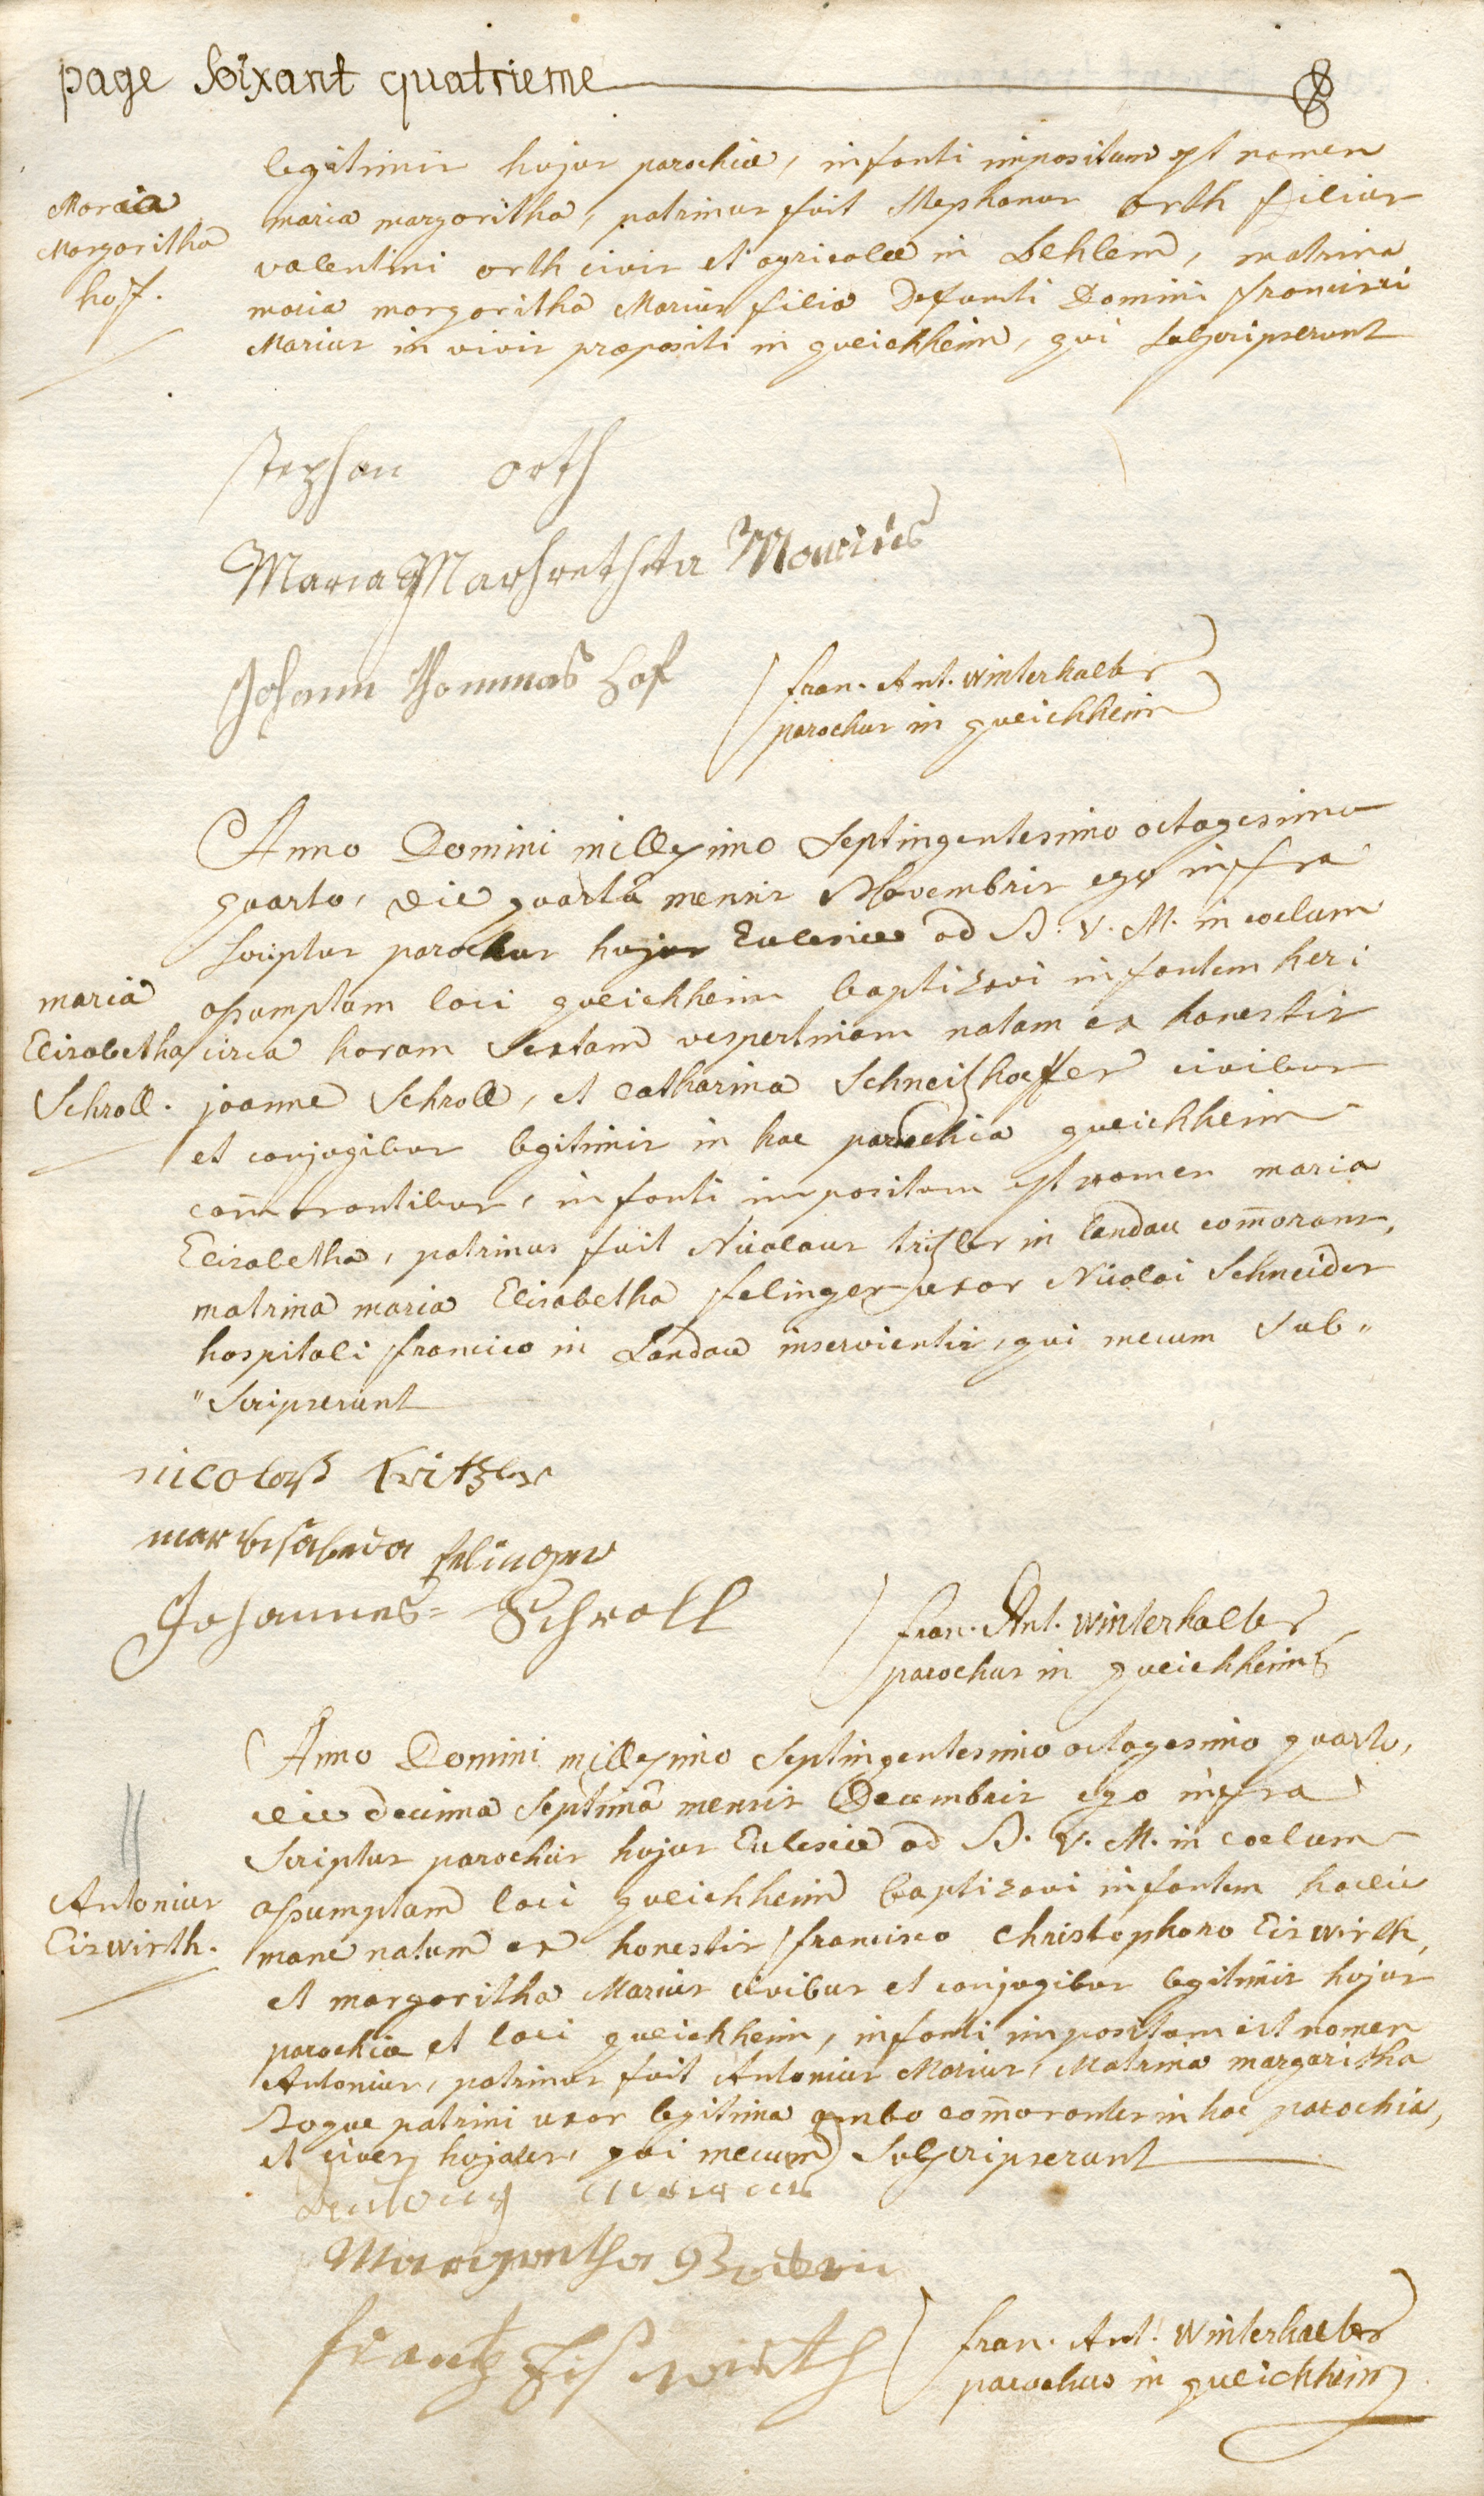 page Soixant quatrieme
legitimis hujus parochiæ, infanti impositum est nomen
Maria
Margaritha
hoff.
maria margaritha, patrinus fuit Stephanus orth filius
valentini orth civis et agricolæ in Behlem, matrina
maria margaritha Marius filia Defuncti Domini francisci
Marius in vivis præpositi in gueichheim, qui subscripserunt
Stephan orth
Maria Marhretsta Marius
Johann Thommas Hof
fran. Ant. Winterhalter
parochus in gueichheim
Anno Domini millesimo Septingentesimo octagesimo
quarto, die quartâ mensis Novembris ego infra
scriptus parochus hujus Ecclesiæ ad B. V. M. in coelum
maria
Elisabetha
Schroll.
assumptam loci gueichheim baptizavi infantem heri
circa horam Sextam vespertinam natam ex honestis
joanne Schroll, et Catharina Schneishoffer civibus
et conjugibus legitimis in hac parochia gueichheim
com̄orantibus, infanti impositum est nomen maria
Elisabetha, patrinus fuit Nicolaus tritzler in landau com̄orans,
matrina maria Elisabetha felinger uxor Nicolai Schneider
hospitali francico in Landau inservientis, qui mecum Sub"
"Scripserunt
nicolaus tritzler
mar elisabeda felinger
Johannes = Schroll
fran. Ant. Winterhalter
parochus in gueichheim
Anno Domini millesimo Septingentesimo octagesimo quarto,
die decima Septimâ mensis Decembris ego infra
Scriptus parochus hujus Ecclesiæ ad B. V. M. in coelum
Antonius
Eiswirth.
assumptam loci gueichheim baptizavi infantem hodie
mane natum ex honestis francisco Christophoro Eiswirth,
et margaritha Marius civibus et conjugibus legitimis hujus
parochiæ et loci gueichheim, infanti impositum est nomen
Antonius, patrinus fuit Antonius Marius, Matrina margaritha
Bogue patrini uxor legitima ambo com̄orantes in hac parochia,
et cives hujates, qui mecum Subscripserunt
Antonius Marius
Margretha
frantz Eiswirth
fran. Ant. Winterhalter
parochus in gueichheim